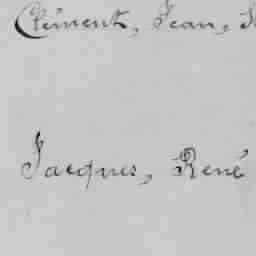 Clément, Jean,
Jacques, René